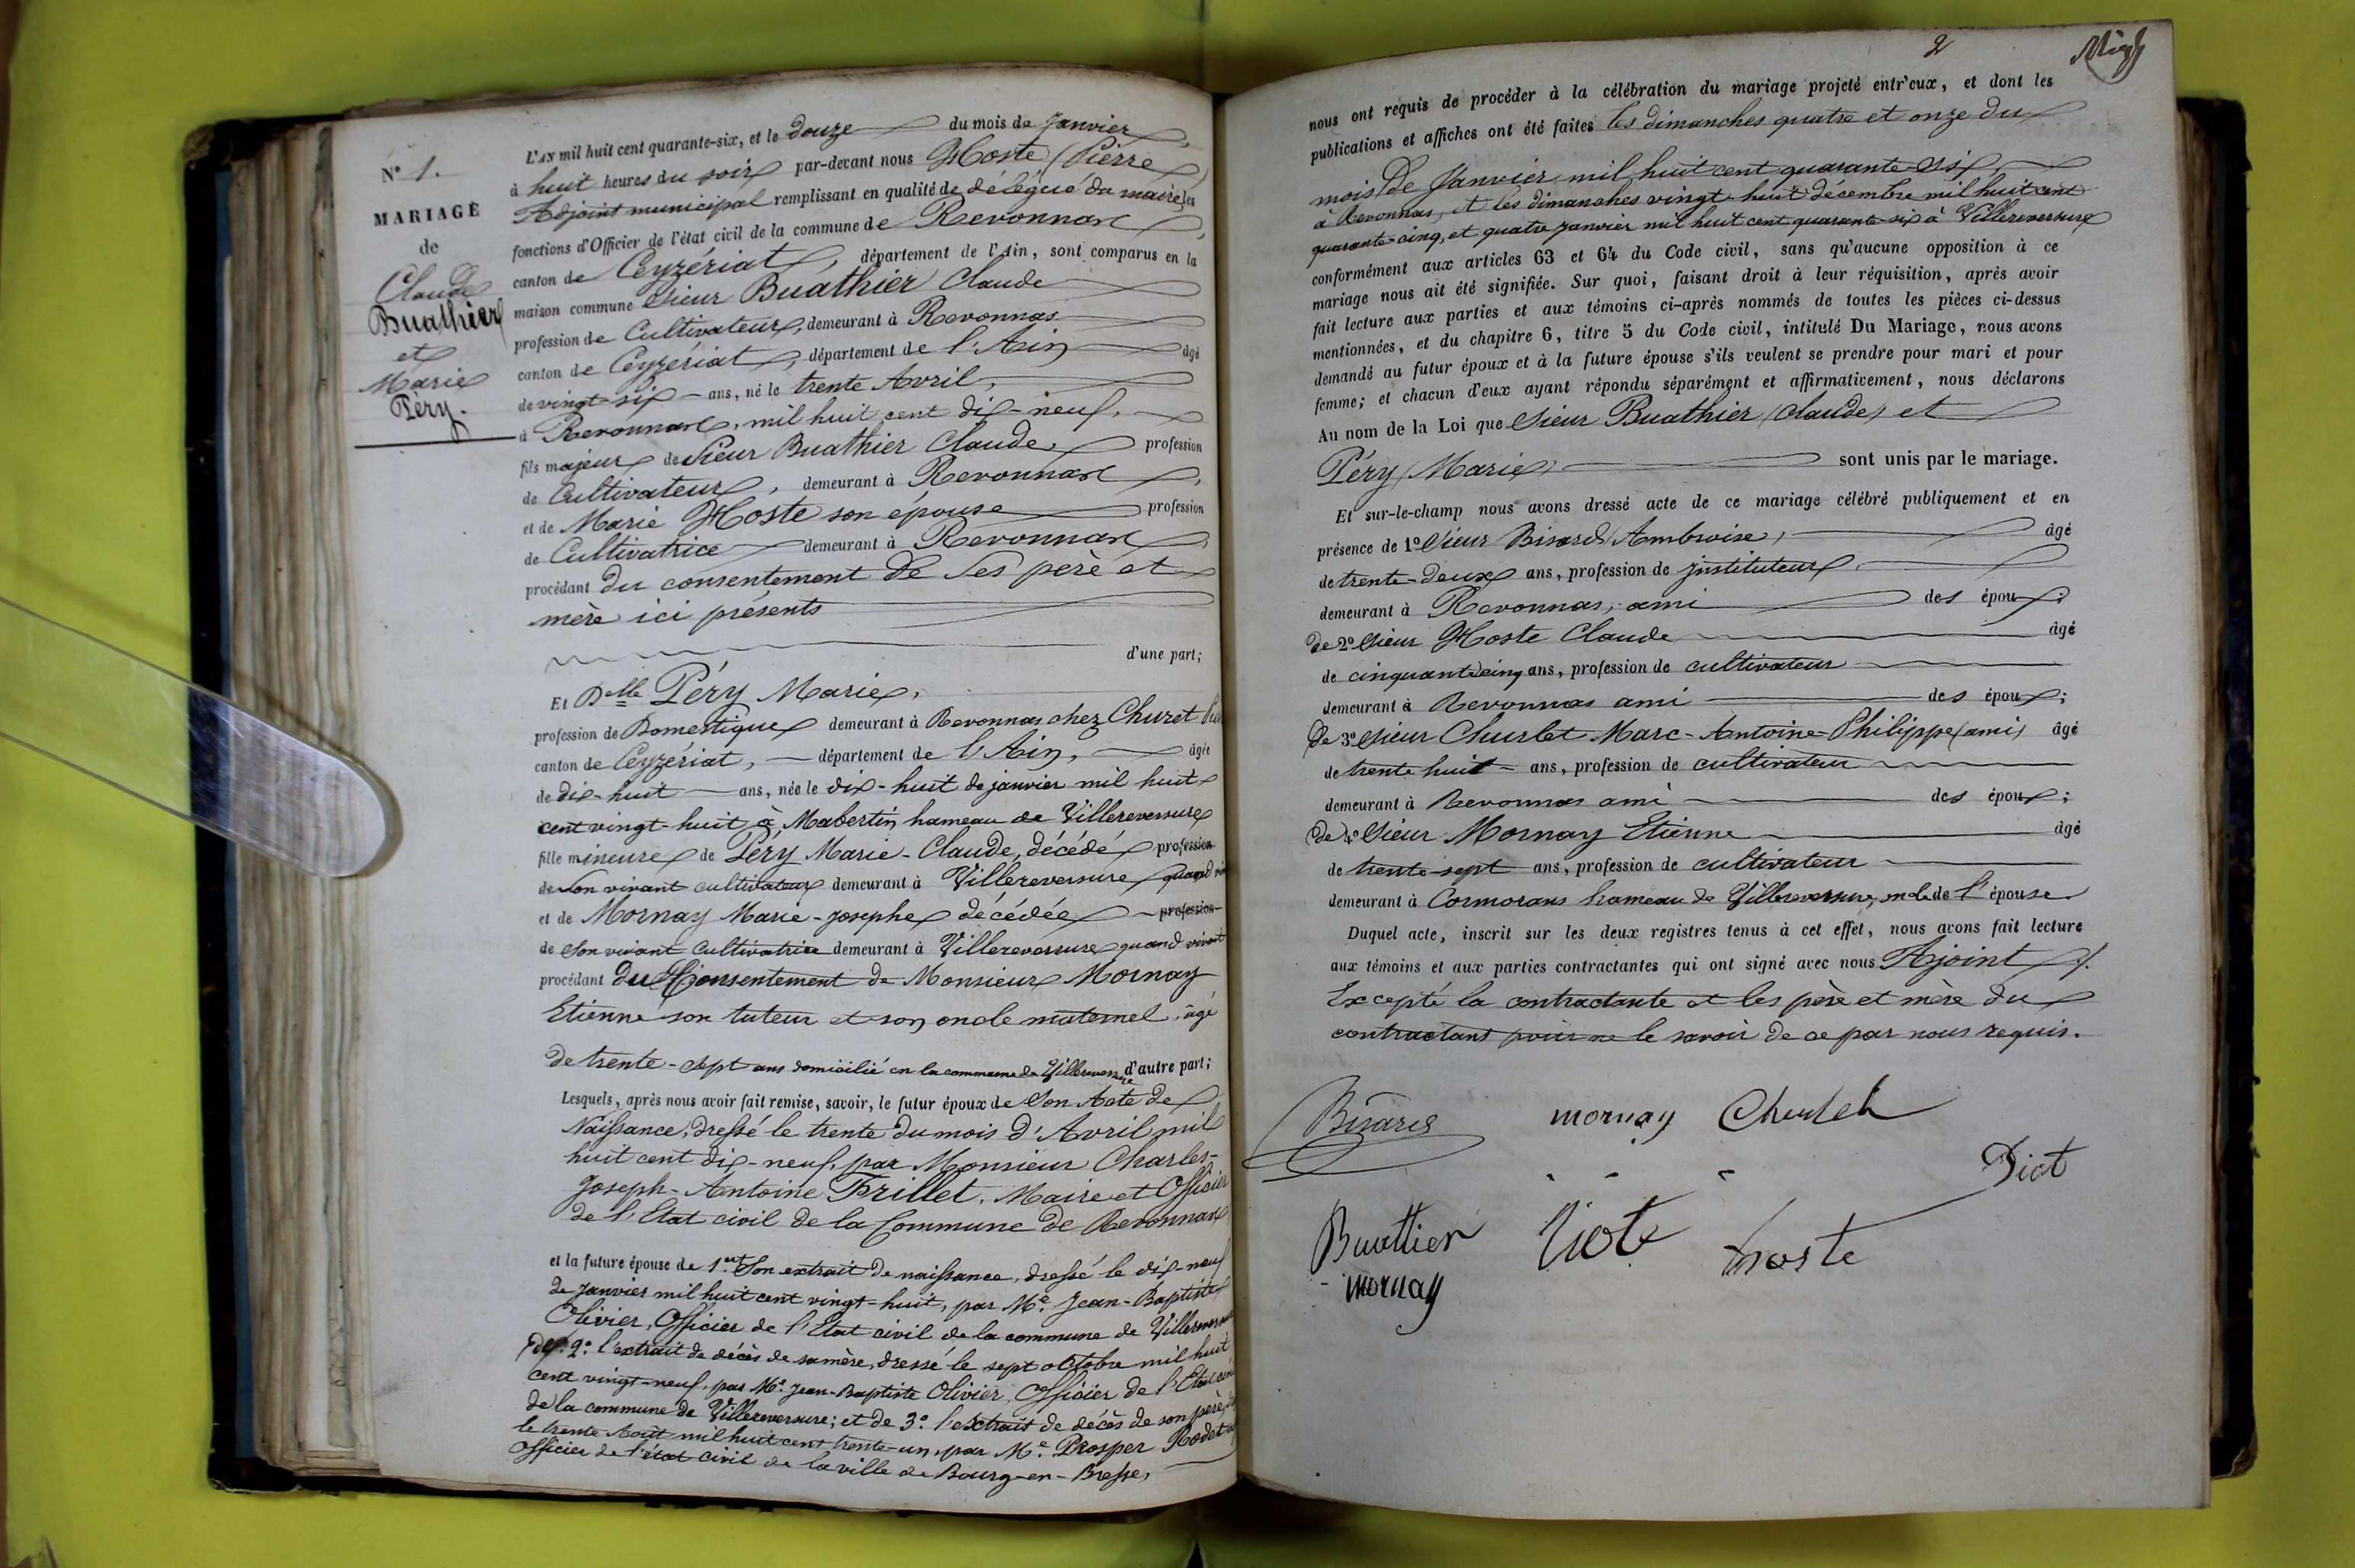 N° 1.
MARIAGE
de
Claude
Buathier
et
Marie
Péry.
L'AN mil huit cent quarante-six, et le douze du mois de Janvier,
à huit heures du soir par-devant nous Hoste (Pierre)
Adjoint municipal remplissant en qualité de délégué du maire les
fonctions d'Officier de l'état civil de la commune de Revonnas,
canton de Ceyzériat, département de l'Ain, sont comparus en la
maison commune Sieur Buathier Claude
profession de Cultivateur, demeurant à Revonnas
canton de Ceyzériat, département de l'Ain âgé
de vingt-six ans, né le trente Avril,
à Revonnas, mil huit cent dix-neuf,
fils majeur de Sieur Buathier Claude, profession
de Cultivateur, demeurant à Revonnas,
et de Marie Hoste son épouse profession
de Cultivatrice demeurant à Revonnas,
procédant du consentement de ses père et
mère ici présents
d'une part;
Et Dlle Péry Marie,
profession de Domestique demeurant à Revonnas chez Churlet
canton de Ceyzériat, département de l'Ain, âgée
de dix-huit ans, née le dix-huit de janvier mil huit
cent vingt-huit, à Mabertin hameau de Villereversure
fille mineure de Péry Marie-Claude, décédé profession
de Son vivant cultivateur demeurant à Villereversure quand
et de Mornay Marie-josephe décédée profession
de Son vivant Cultivatrice demeurant à Villereversure quand vivait
procédant du Consentement de Monsieur Mornay
Etienne son tuteur et son oncle maternel, âgé
de trente-sept ans domicilié en la commune de Villereversure d'autre part;
Lesquels, après nous avoir fait remise, savoir, le futur époux de Son Acte de
Naissance, dressé le trente du mois d'Avril mil
huit cent dix-neuf, par Monsieur Charles-
Joseph-Antoine Brillet, Maire et Officier
de l'Etat civil de la Commune de Revonnas
et la future épouse de 1ent Son extrait de naissance, dressé le dix-neuf
de Janvier mil huit cent vingt-huit, par Me. Jean-Baptiste
Olivier, Officier de l'Etat civil de la commune de Villereversure
de 2° l'extrait de décès de sa mère, dressé le sept octobre mil huit
cent vingt-neuf, par Me. Jean-Baptiste Olivier, Officier de l'Etat civil
de la commune de Villereversure; et de 3° l'extrait de décès de son père,
le trente Août mil huit cent trente-un, par Me. Prosper Rodet
officier de l'état civil de la ville de Bourg-en-Bresse,
2
nous ont requis de procéder à la célébration du mariage projeté entr'eux, et dont les
publications et affiches ont été faites les dimanches quatre et onze du
mois de Janvier mil huit cent quarante-six,
à Revonnas, et les dimanches vingt-huit décembre mil huit cent
quarante-cinq, et quatre janvier mil huit cent quarante-six à Villereversure
conformément aux articles 63 et 64 du Code civil, sans qu'aucune opposition à ce
mariage nous ait été signifiée. Sur quoi, faisant droit à leur réquisition, après avoir
fait lecture aux parties et aux témoins ci-après nommés de toutes les pièces ci-dessus
mentionnées, et du chapitre 6, titre 5 du Code civil, intitulé Du Mariage, nous avons
demandé au futur époux et à la future épouse s'ils veulent se prendre pour mari et pour
femme; et chacun d'eux ayant répondu séparément et affirmativement, nous déclarons
Au nom de la Loi que Sieur Buathier (Claude) et
Péry (Marie) sont unis par le mariage.
Et sur-le-champ nous avons dressé acte de ce mariage célébré publiquement et en
présence de 1° Sieur Bisard (Ambroise, âgé
de trente-deux ans, profession de Instituteur,
demeurant à Revonnas, ami des époux;
de 2° Sieur Hoste Claude âgé
de cinquante cinq ans, profession de cultivateur
demeurant à Revonnas ami des époux;
de 3° Sieur Churlet Marc-Antoine-Philippe (ami) âgé
de trente huit ans, profession de cultivateur
demeurant à Revonnas ami des époux;
de 4° Sieur Mornay Etienne âgé
de trente-sept ans, profession de cultivateur
demeurant à Cormorans hameau de Villereversure, oncle de l'épouse
Duquel acte, inscrit sur les deux registres tenus à cet effet, nous avons fait lecture
aux témoins et aux parties contractantes qui ont signé avec nous Ajoint
Excepté la contractante et les père et mère du
contractant pour ne le savoir de ce par nous requis.
Bisard mornay Churlet
Piot
Buattier Viot hoste
mornay